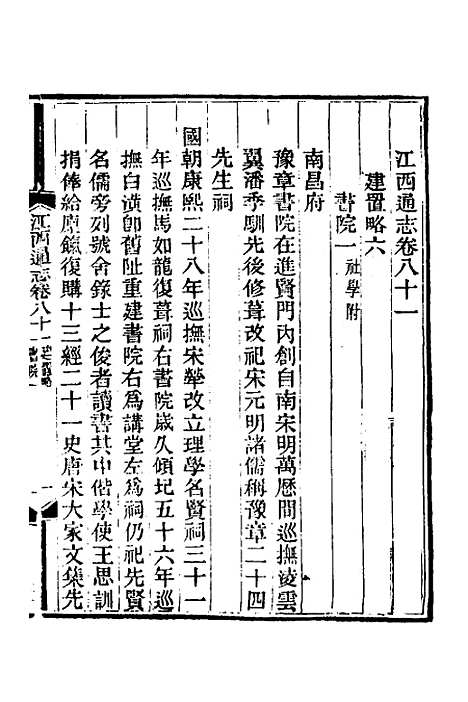 江西通志卷八十一
建置略六
書院一 社學附
南昌府
豫章書院在進賢門內創自南宋明萬歷間巡撫淩雲
翼潘季馴先後修葺改祀宋元明諸儒稱豫章二十四
先生祠
國朝康熙二十八年巡撫宋犖改立理學名賢祠三十一
年巡撫馬如龍復葺祠右書院歲久傾圮五十六年巡
撫白潢卽舊阯重建書院右爲講堂左爲祠仍祀先賢
名儒旁列號舍錄士之俊者讀書其中偕學使王思訓
捐俸給廩餼復購十三經二十一史唐宋大家文集先
江西通志卷八十一 建置略 書院一 一